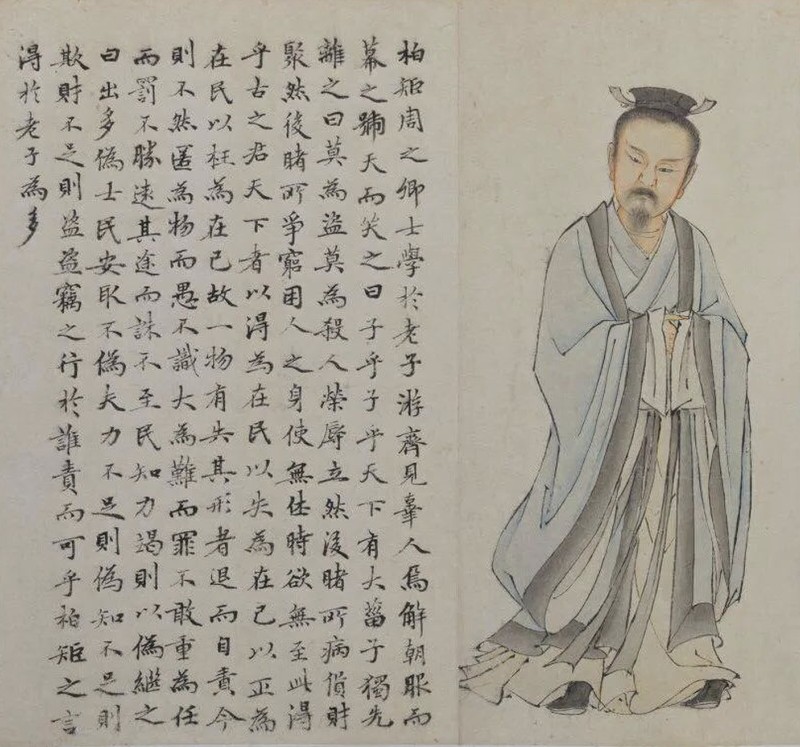 柏矩周之卿士學於老子游齊見辜人焉解朝服而
幕之號天而哭之曰子乎子乎天下有大菑子獨先
離之曰莫為盜莫為殺人榮辱立然後睹所病貨財
聚然後睹所爭窮困人之身使無休時欲無至此得
乎古之君天下者以得為在民以失為在己以正為
在民以枉為在己故一物有失其形者退而自責今
則不然匿為物而愚不識大為難而罪不敢重為任
而罰不勝遠其途而誅不至民知力竭則以偽繼之
日出多偽士民安取不偽夫力不足則偽知不足則
欺財不足則盜盜竊之行於誰責而可乎柏矩之言
得於老子為多